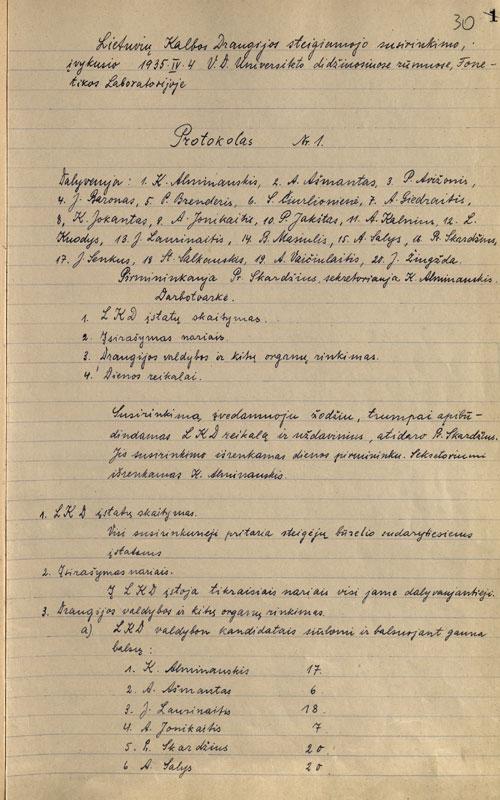 30 1
Lietuvių Kalbos Draugijos steigiamojo susirinkimo,
įvykusio 1935.IV.4 V.D. Universiteto didžiuosiuose rūmuose, Fone-
tikos Laboratorijoje
Protokolas Nr 1.
Dalyvauja: 1. K. Alminauskis, 2. A. Ašmantas, 3. P. Avižonis,
4. J. Baronas, 5. P. Brenderis, 6. S. Čiurlionienė, 7. A. Giedraitis,
8. K. Jokantas, 9. A. Jonikaitis, 10. P. Jakštas, 11. A. Kalnius, 12. L.
Kuodys, 13. J. Laurinaitis, 14. B. Masiulis, 15. A. Salys, 16. Pr. Skardžius,
17. J. Senkus, 18 St. Šalkauskis, 19. A. Vaičiulaitis, 20. J. Žiugžda.
Pirmininkauja Pr. Skardžius, sekretoriauja K. Alminauskis.
Darbotvarkė.
1. LKD įstatų skaitymas.
2. Įsirašymas nariais.
3. Draugijos valdybos ir kitų organų rinkimas.
4. Dienos reikalai.
Susirinkimą įvedamuoju žodžiu, trumpai apibū-
dindamas LKD reikalą ir uždavinius, atidaro P. Skardžius.
Jis susirinkimo išrenkamas dienos pirmininku. Sekretoriumi
išrenkamas K. Alminauskis.
1. LKD įstatų skaitymas.
Visi susirinkusieji pritaria steigėjų būrelio sudarytiesiems
įstatams
2. Įsirašymas nariais.
Į LKD įstoja tikraisiais nariais visi jame dalyvaujantieji.
3. Draugijos valdybos ir kitų organų rinkimas.
a) LKD valdybon kandidatais siūlomi ir balsuojant gauna
balsų:
1. K. Alminauskis 17.
2. A. Ašmantas 6
3. J. Laurinaitis 18.
4. A. Jonikaitis 7
5. P. Skardžius 20
6 A. Salys 20